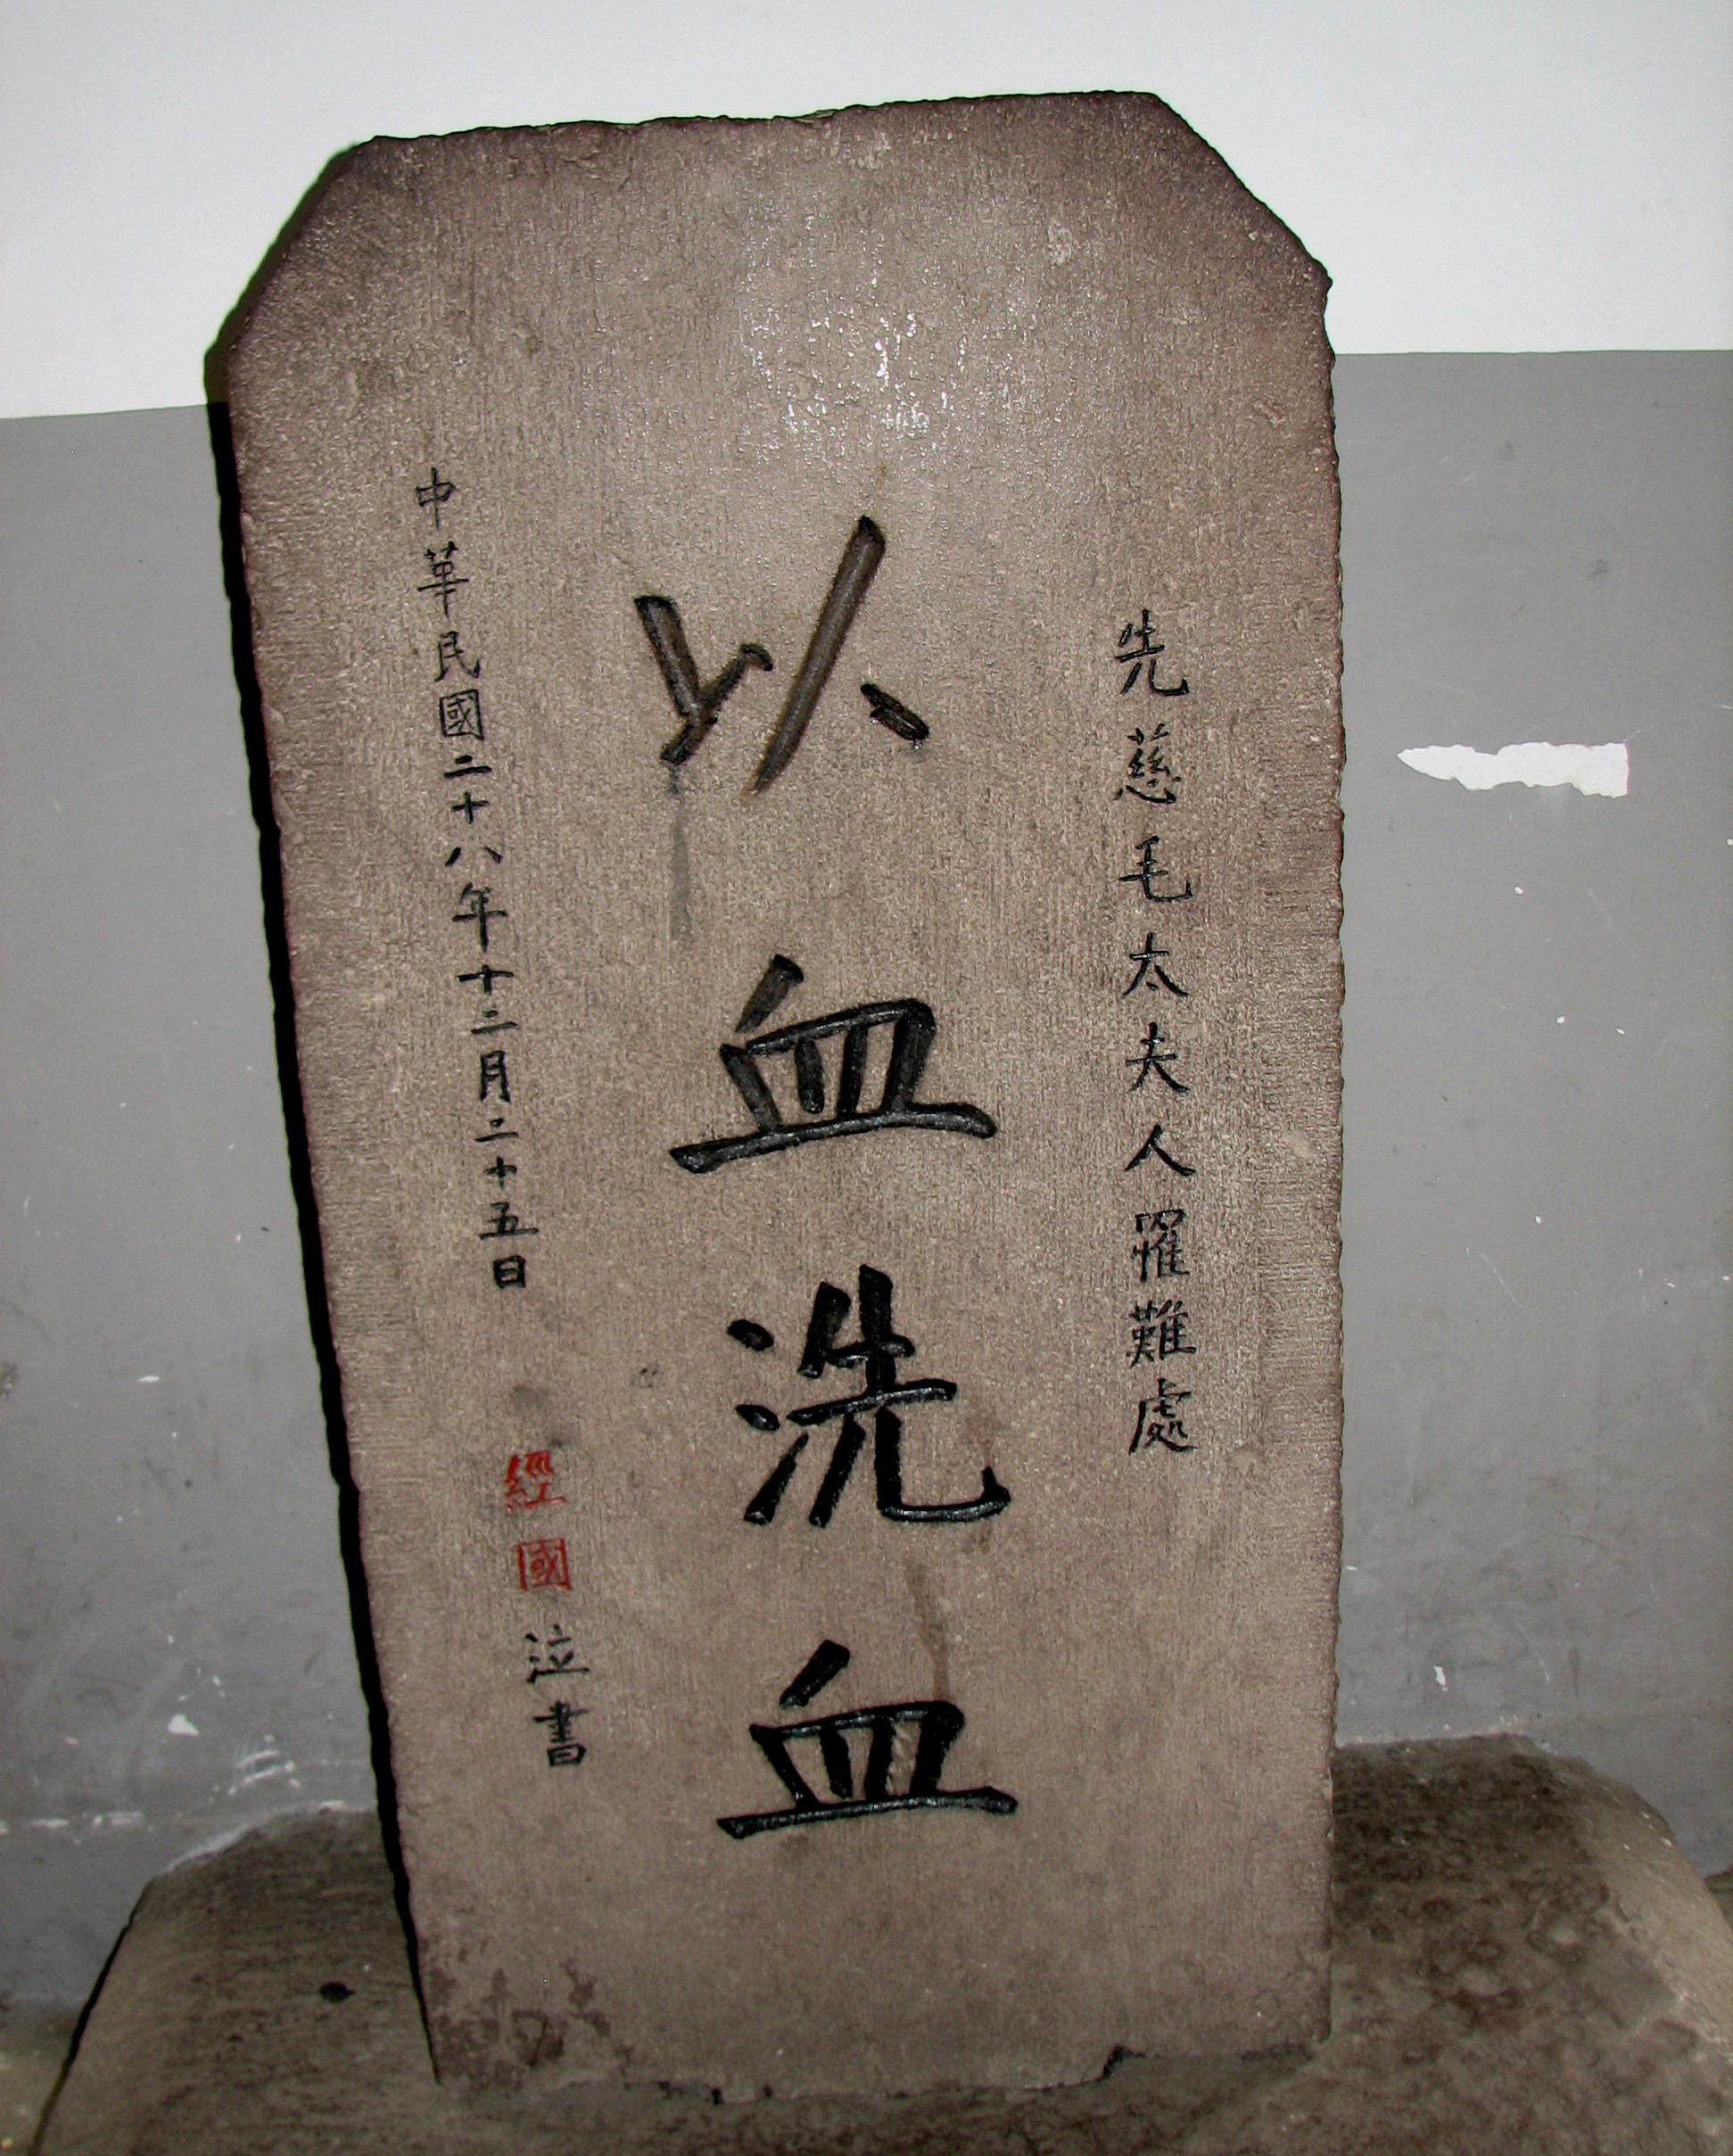 先慈毛太夫人罹難處
以血洗血
中華民國二十八年十二月二十五日 經國泣書